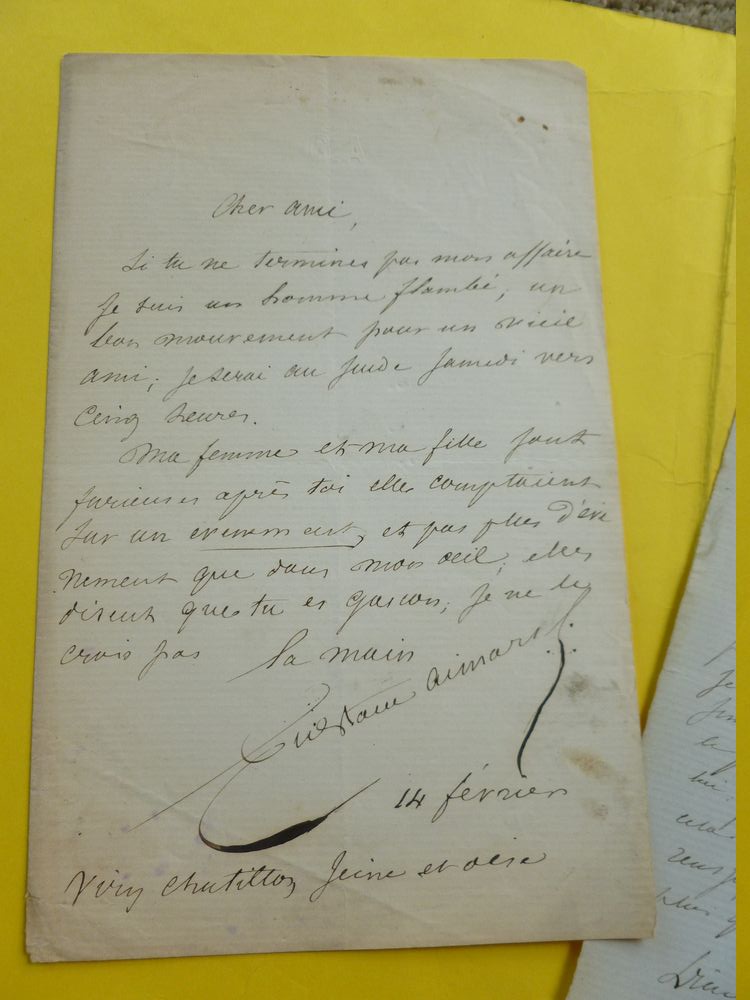 Cher ami,
Si tu ne termines pas mon affaire
je suis un homme flambé, un
bon mouvement pour un vieil
ami; je serai au samedi vers
cinq heures.
Ma femme et ma fille sont
furieuses après toi elles comptaient
sur un evenement, et pas plus d'évé
nement que dans mon oeil; elles
disent que tu es gascon, je ne le
crois pas la main
Gustave Aimard
14 février
Viry chatillon Seine et oise
je